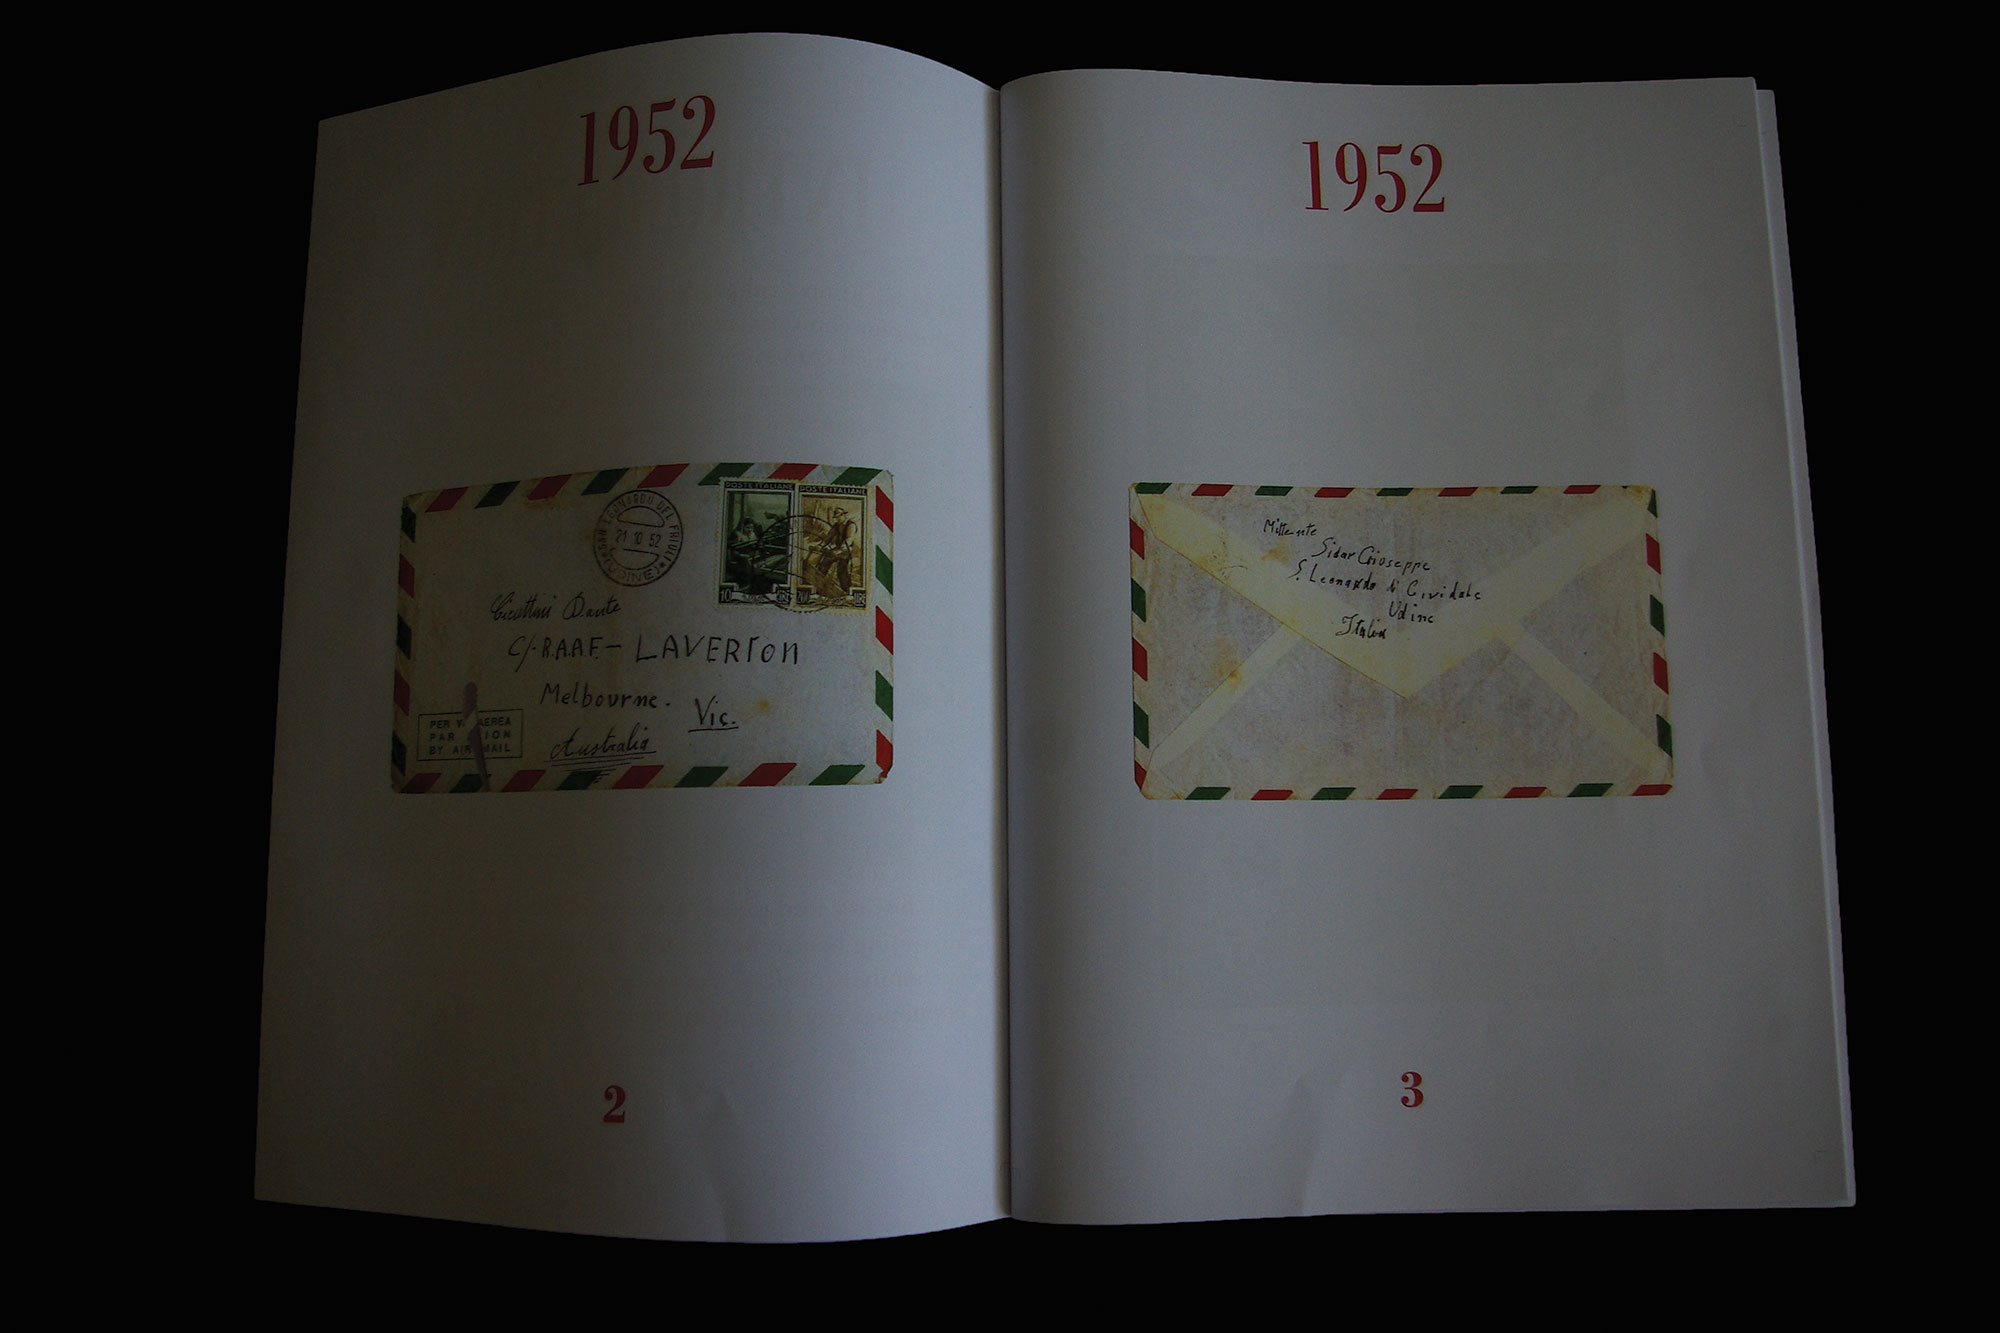 1952
SAN LEONARDO DEL FRIULI
21 10 52
(UDINE)
POSTE ITALIANE
POSTE ITALIANE
10
200
LIRE
Cicuttini Dante
C/- R.A.A.F. - LAVERTON
Melbourne.
Vic.
Australia
PER VIA AEREA
PAR AVION
BY AIR MAIL
2
1952
Mittente
Sidar Giuseppe
S. Leonardo di Cividale
Udine
Italia
3